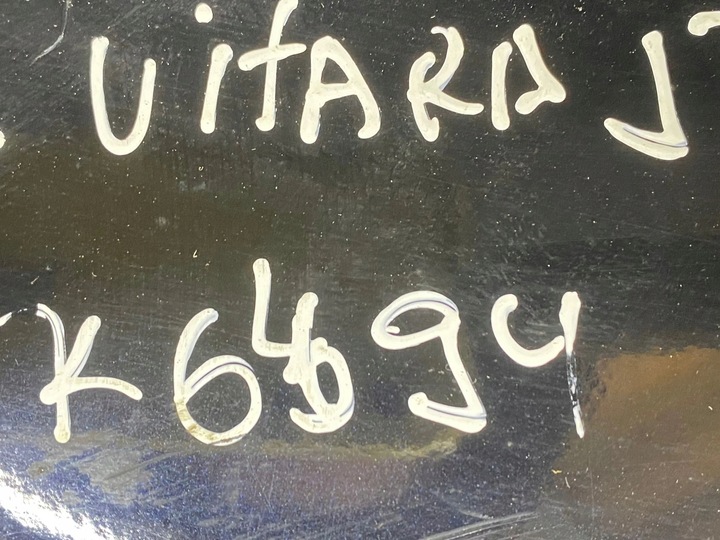 VitARA J
K64694